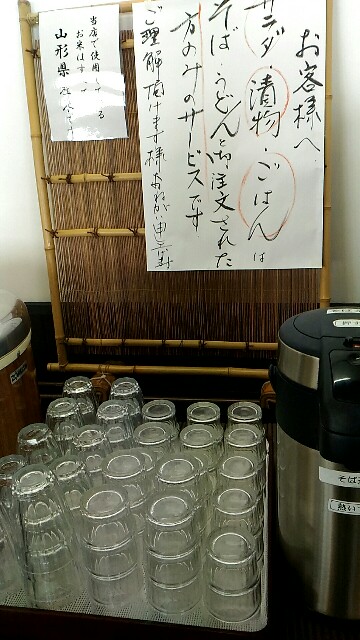 お客様へ
サラダ・漬物・ごはんは
そば・うどんと御注文された
方のみのサービスです
ご理解頂けます様おねがい申
当店で使用
お米はす
山形県
押す
そば
熱い